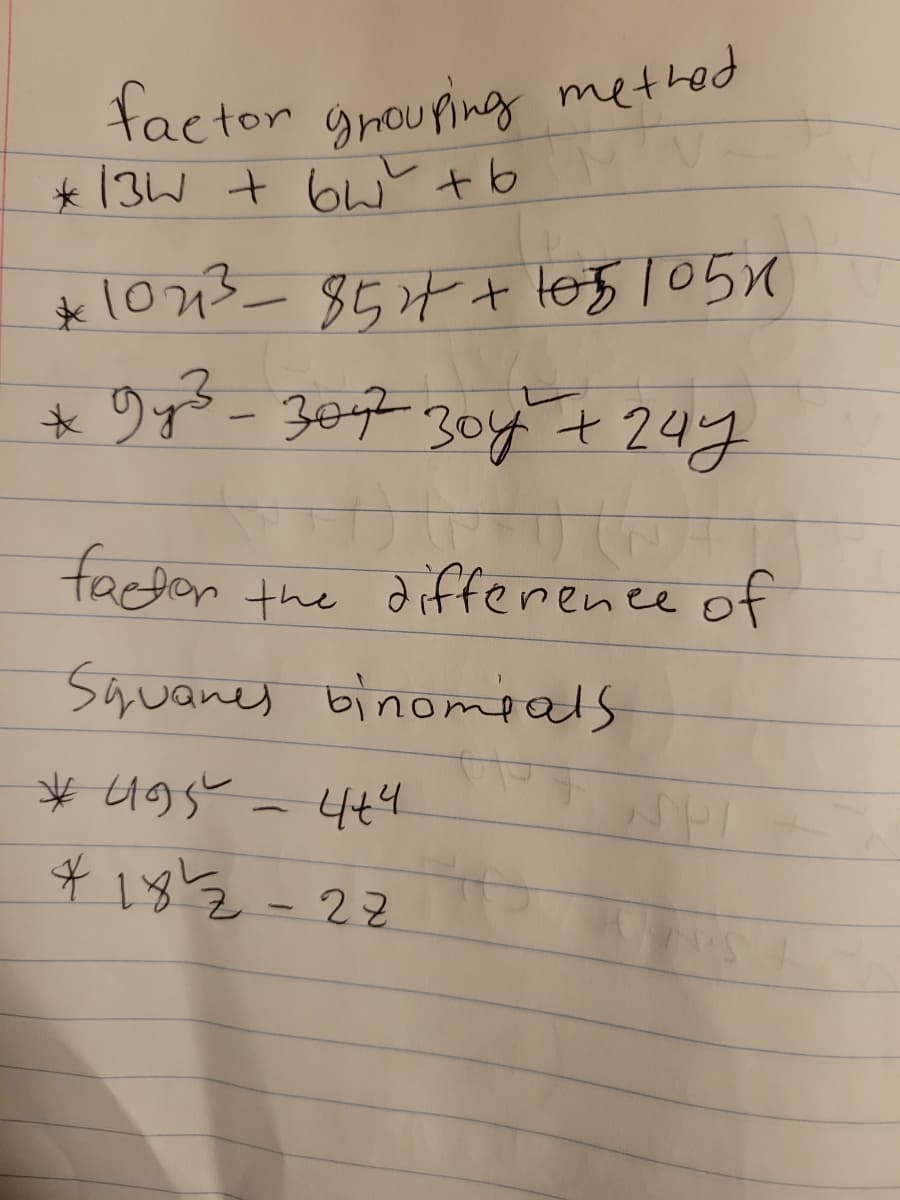 factor grouping method
* 13w + 6w² + 6
* 10x³ - 85x² + 105x
* 9y³ - 30y² 30y² + 24y
factor the difference of
Squares binomials
* 49s² - 4t⁴
* 18²z - 2z